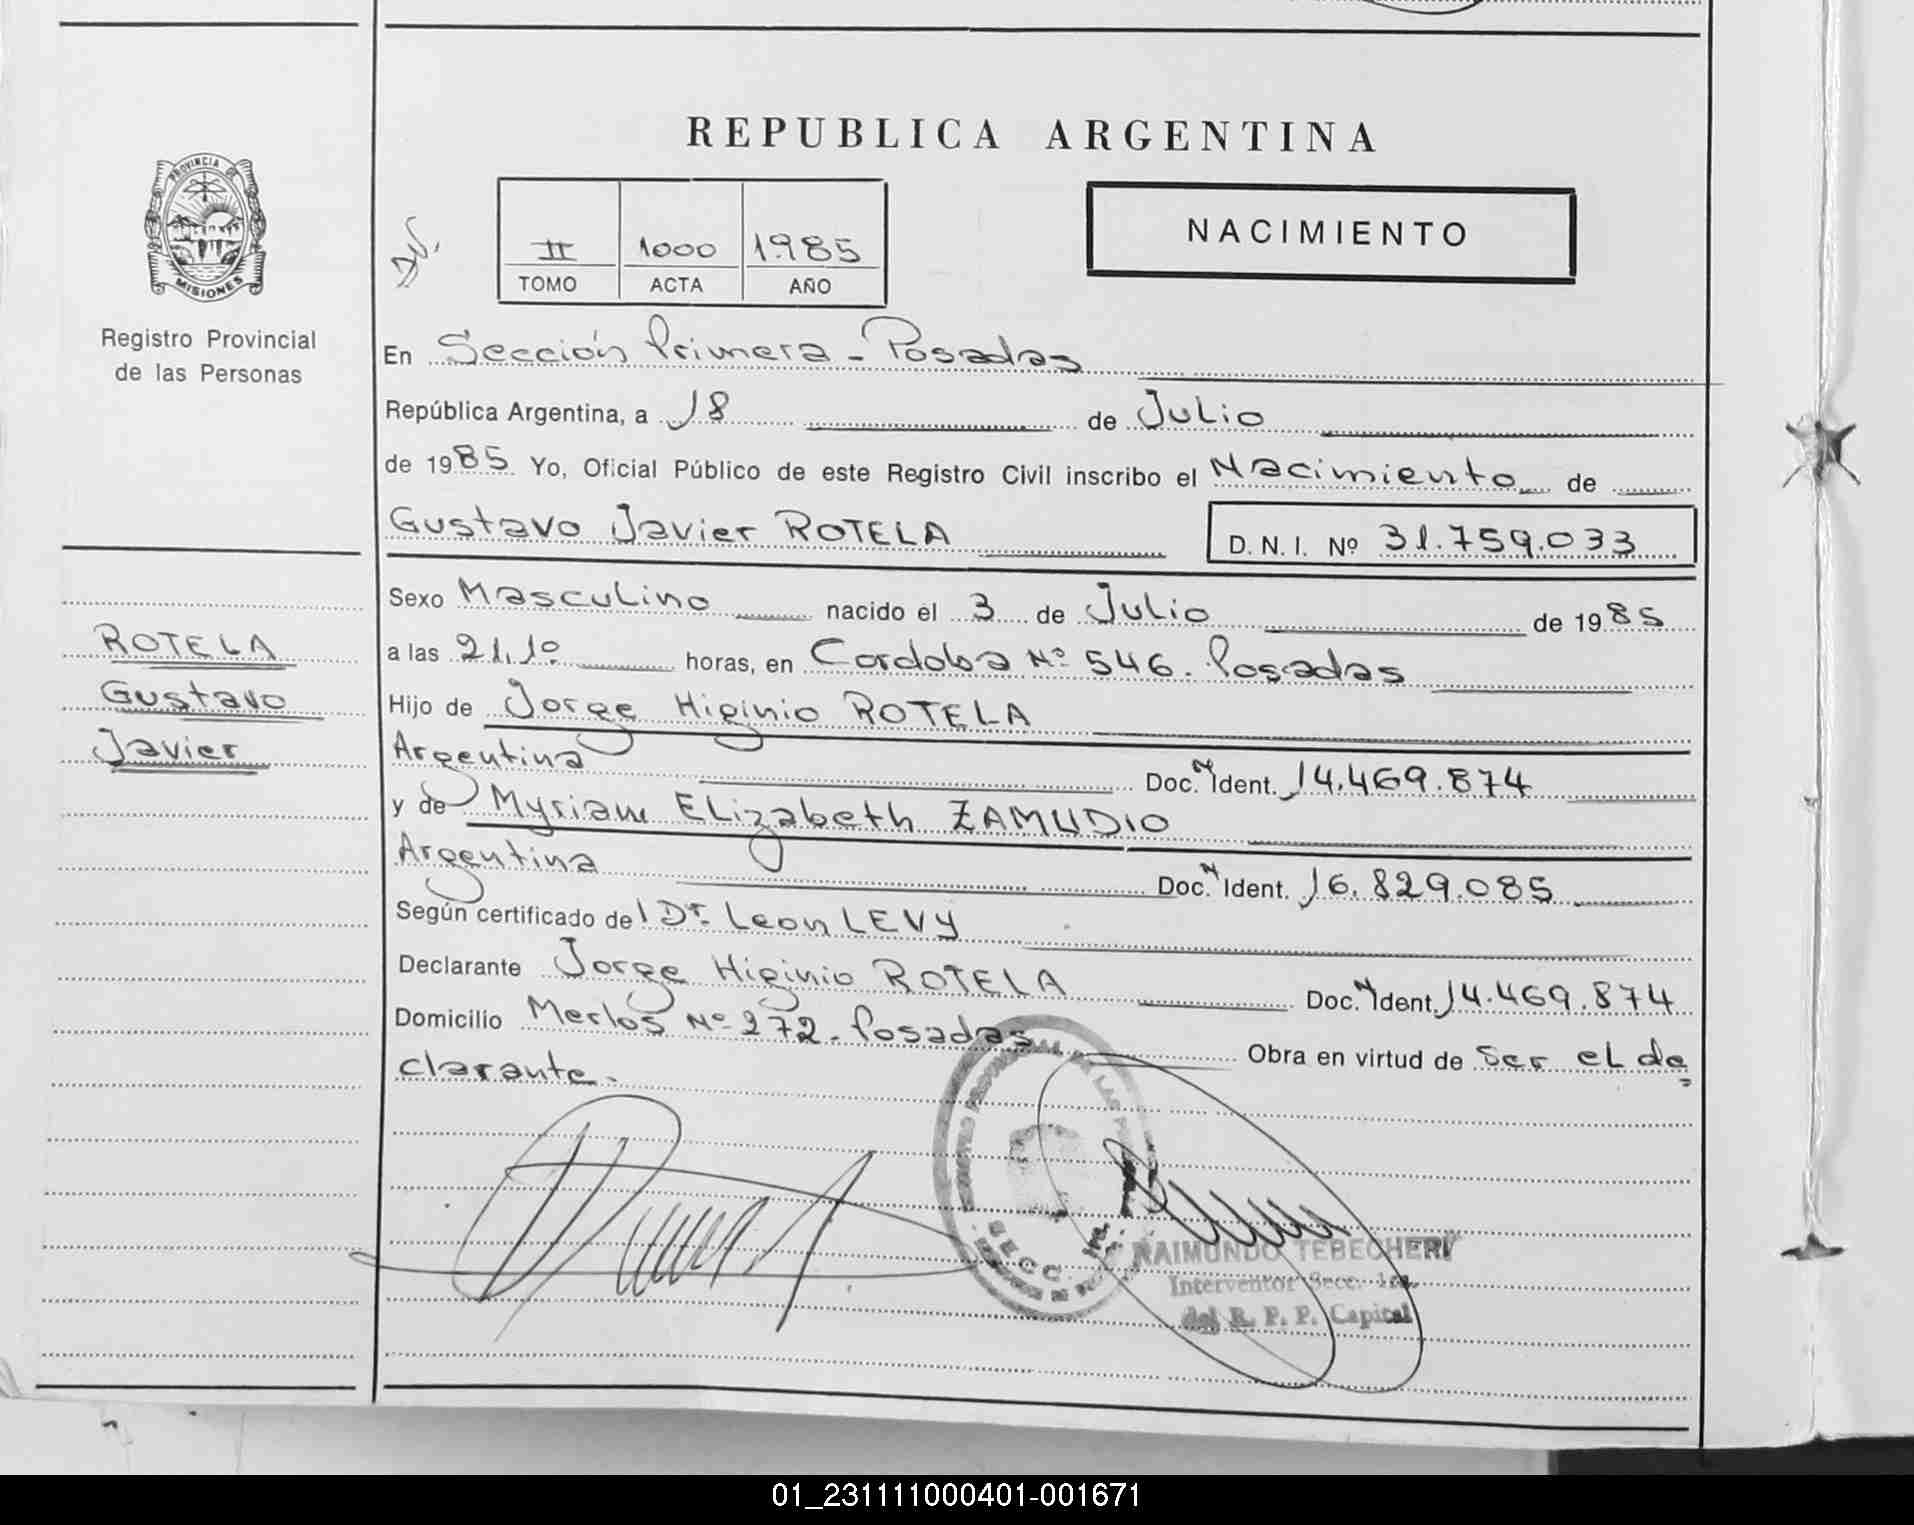 REPUBLICA ARGENTINA
PROVINCIA DE
MISIONES
Registro Provincial
de las Personas
II 1000 1.985
TOMO ACTA AÑO
NACIMIENTO
En Sección Primera - Posadas
República Argentina, a 18 de Julio
de 1985 Yo, Oficial Público de este Registro Civil inscribo el Nacimiento de
Gustavo Javier ROTELA D. N. I. Nº 31.759.033
Sexo Masculino nacido el 3 de Julio de 1985
ROTELA
Gustavo
Javier
a las 21,10 horas, en Cordoba Nº 546. Posadas
Hijo de Jorge Higinio ROTELA
Argentina Doc. N Ident. 14.469.874
y de Myriam ELizabeth ZAMUDIO
Argentina Doc. N Ident. 16.829.085
Según certificado de Dr. Leon LEVY
Declarante Jorge Higinio ROTELA Doc. N Ident. 14.469.874
Domicilio Merlos Nº 272. Posadas
Obra en virtud de ser el de=
clarante.
SECC. 1ra.
RAIMUNDO TEBECHERI
Interventor Secc. 1ra.
del R. P. P. Capital
01_231111000401-001671